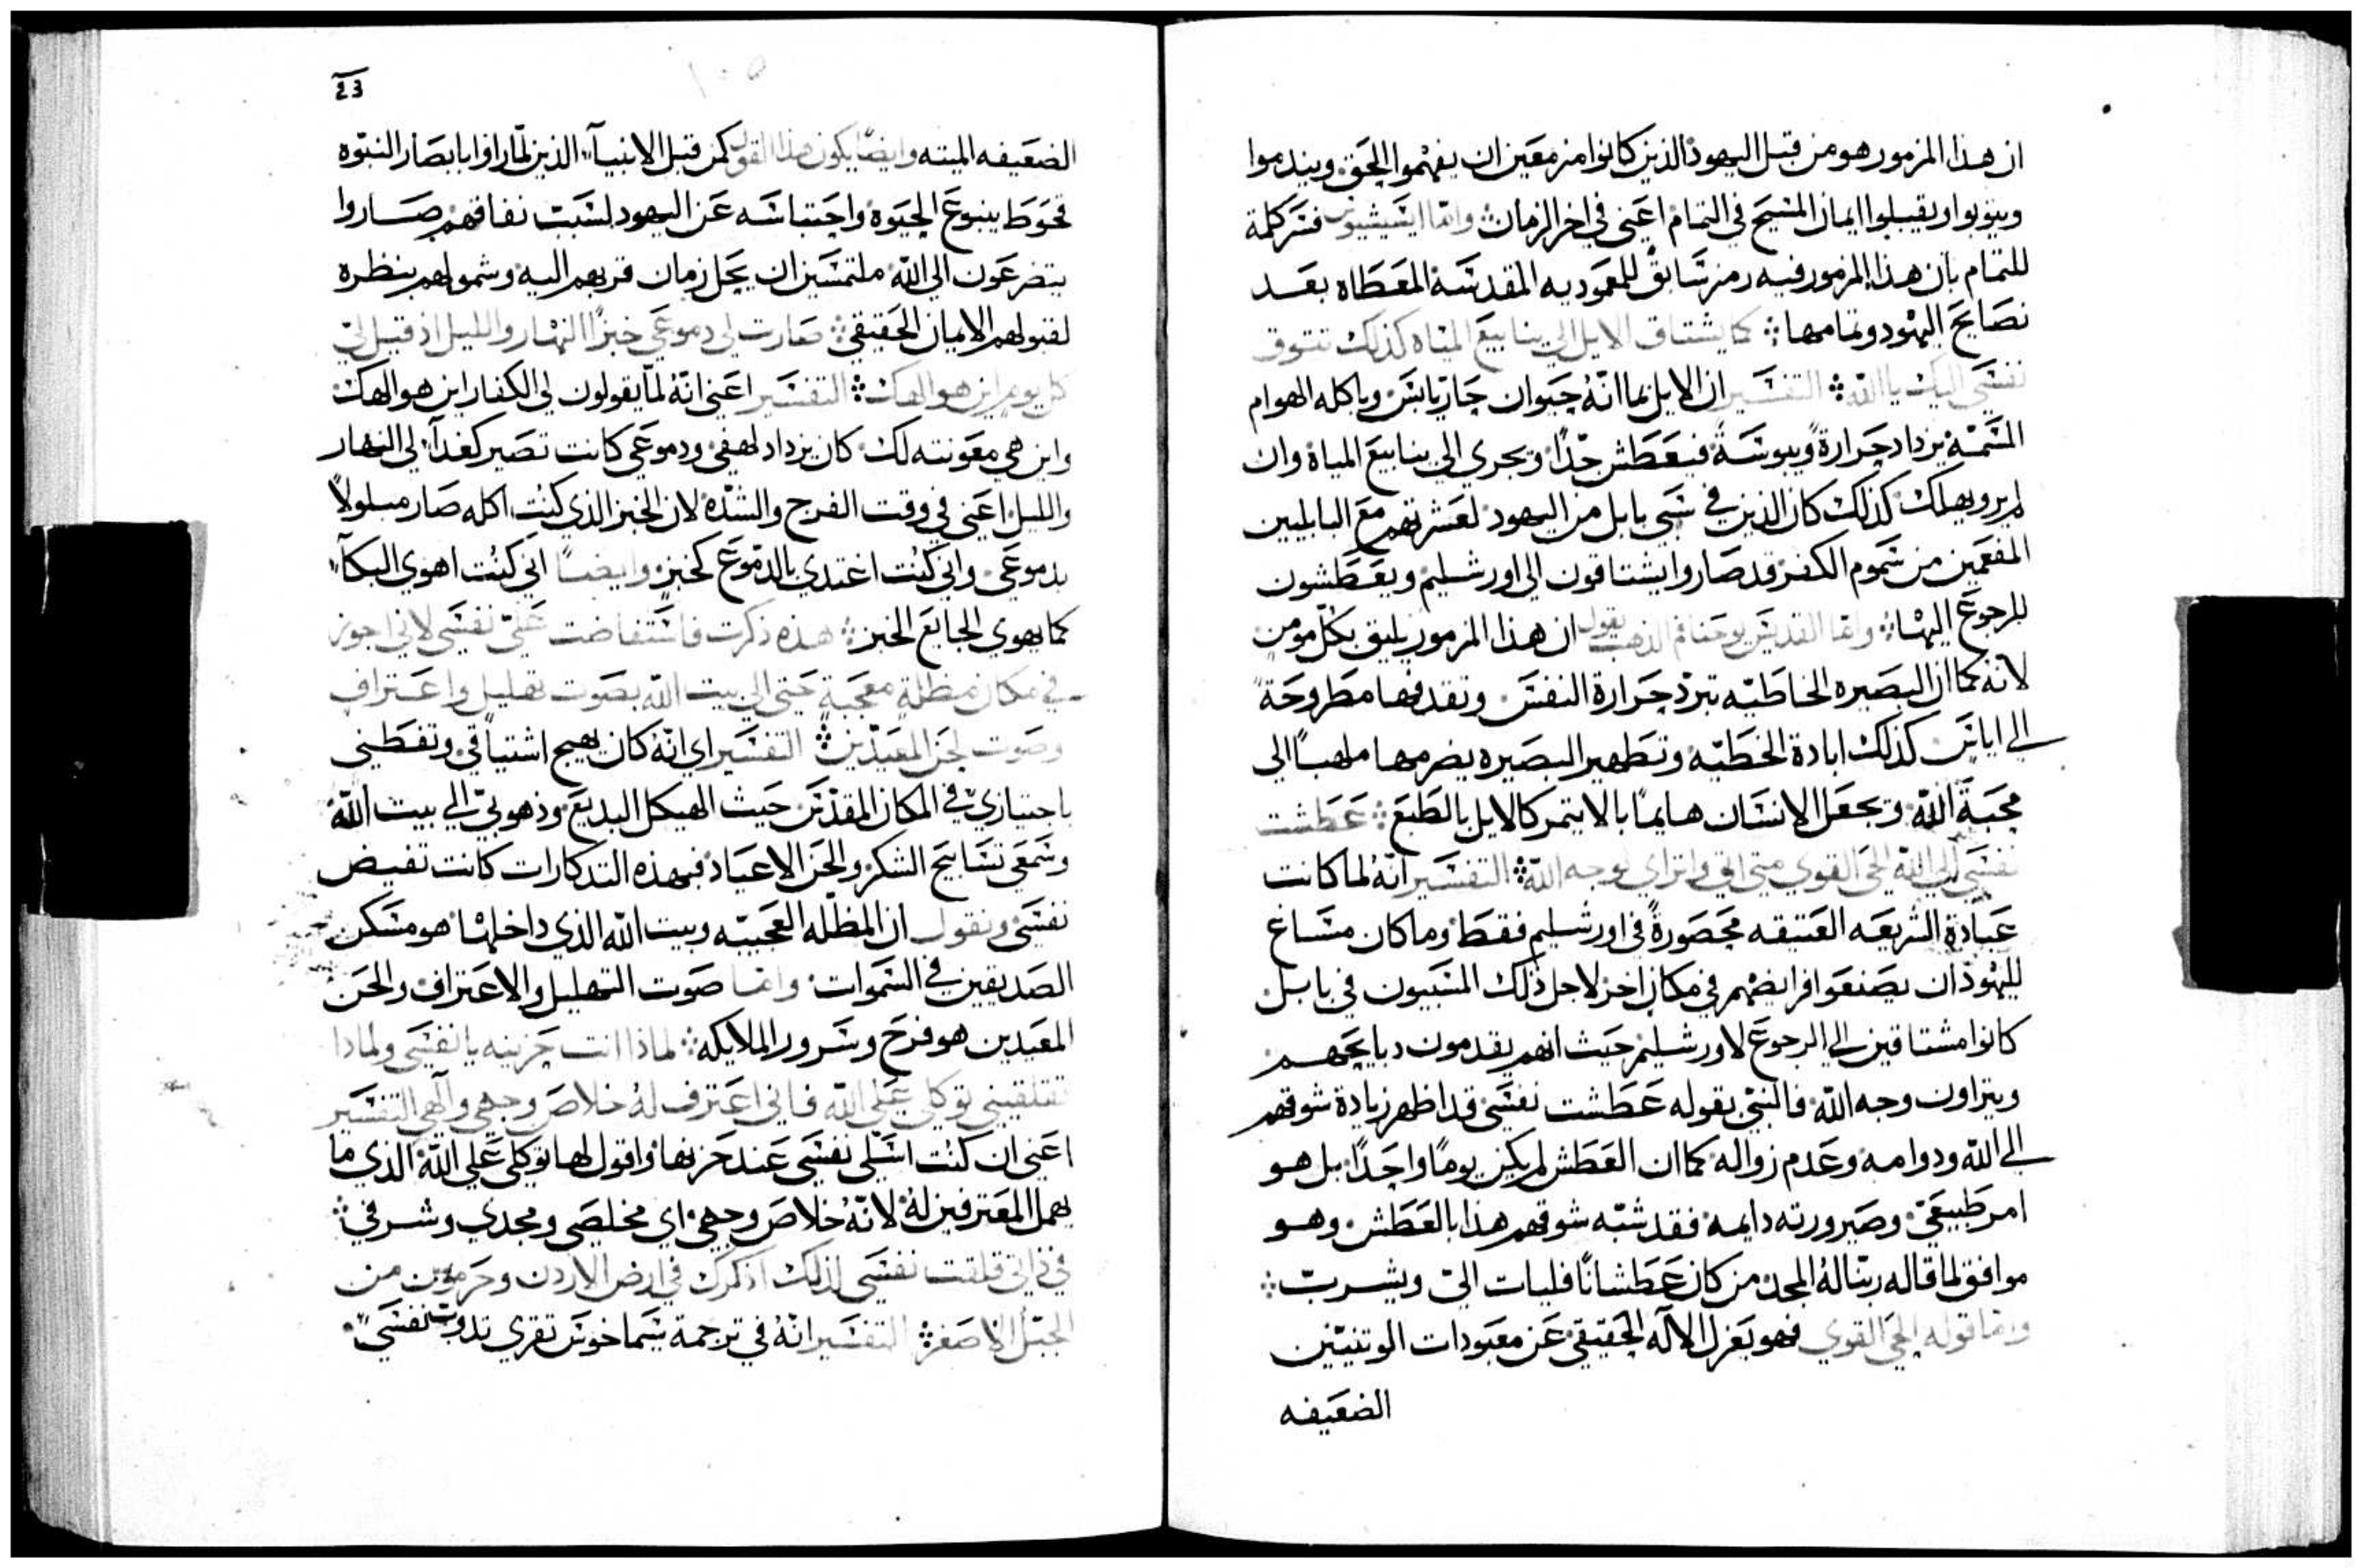 ان هذا المزمور هو من قبل اليهود الذين كانوا مزمعين ان يفهموا الحق ويندموا
ويتوبوا ويقبلوا ايمان المسيح في التمام اعني في اخر الزمان واما ايسيشيوس فسر كلمة
للتمام بان هذا المزمور فيه رمز سابق للمعموديه المقدسة المعطاه بعد
نصايح اليهود وتمامها كما يشتاق الايل الي ينابيع المياه كذلك تتوق
نفسي اليك يا الله التفسير ان الايل بما انه حيوان حار يابس وباكله الهوام
السمية يزداد حرارة ويبوسة فيعطش جدا ويجري الي ينابيع المياة وان
لم يرو يهلك كذلك كان الذين في سبي بابل من اليهود لعشرتهم مع البابليين
المفعمين من سموم الكفر قد صاروا يشتاقون الي اورشليم ويعطشون
للرجوع اليها واما القديس يوحنا فم الذهب يقول ان هذا المزمور يليق بكل مومن
لانه كما ان البصيره الخاطيه تبرد حرارة النفس وتقدفها مطروحة
الي اياس كذلك ابادة الخطيه وتطهير البصيره يضرمها ملهبا الي
محبة الله ويجعل الانسان هايما بالايتمر كالايل بالطبع عطشت
نفسي الي الله الحي القوي متي اتي واتراي لوجه الله التفسير انه لما كانت
عبادة الشريعه العتيقه محصورة في اورشليم فقط وما كان مساغ
لليهود ان يصنعوا فرايضهم في مكان اخر لاجل ذلك المسبيون في بابل
كانوا مشتاقين الي الرجوع لاورشليم حيث انهم يقدمون دبايحهم
ويتراون وجه الله فالنبي بقوله عطشت نفسي قد اظهر زيادة شوقهم
الي الله ودوامه وعدم زواله كما ان العطش لم يكن يوما واحدا بل هو
امر طبيعي وصيرورته دايمه فقد شبه شوقهم هذا بالعطش وهو
موافق لما قاله ربنا له المجد من كان عطشانا فليات الي ويشرب
واما قوله الحي القوي فهو يعزل الاله الحقيقي عن معبودات الوتنيين
الضعيفه
23
الضعيفه الميته وايضا يكون هذا القول كمن قبل الانبيآ الذين لما راوا بابصار النبوه
تحوط ينبوع الحيوة واحتباسه عن اليهود لسبب نفاقهم صاروا
يتضرعون الي الله ملتمسين ان يحل زمان قربهم اليه وشمولهم بنظره
لقبولهم الايمان الحقيقي صارت لي دموعي خبزا النهار والليل اذ قيل لي
كل يوم اين هو الهك التفسير اعني انه لما يقولون لي الكفار اين هو الهك
واين هي معونته لك كان يزداد لهفي ودموعي كانت تصير كغدآ لي النهار
والليل اعني في وقت الفرج والشده لان الخبز الذي كنت اكله صار مبلولا
بدموعي واني كنت اغتدي بالدموع كخبز وايضا اني كنت اهوي البكآ
كما يهوي الجايع الخبز هذه ذكرت فاستفاضت علي نفسي لاني اجوز
في مكان مظلة معجبة حتي الي بيت الله بصوت تهليل واعتراف
وصوت لحن المعيدين التفسير اي انه كان يهيج اشتياقي وتفطني
باجتيازي في المكان المقدس حيث الهيكل البديع وذهوبي الي بيت الله
وسمعي تسابيح الشكر والحن الاعياد فبهذه التدكارات كانت تفيض
نفسي ونقول ان المظله العجيبه وبيت الله الذي داخلها هو مسكن
الصديقين في السموات واما صوت التهليل والاعتراف ولحن
المعيدين هو فرح وسرور الملايكه لماذا انت حزينه يا نفسي ولماذا
تقلقيني توكلي علي الله فاني اعترف له خلاص وجهي والهي التفسير
اعني ان كنت اسلي نفسي عند حزنها واقول لها توكلي علي الله الذي ما
يهمل المعترفين له لانه خلاص وجهي اي مخلصي ومجدي وشرفي
في ذاتي قلقت نفسي لذلك اذكرك في ارض الاردن وحرمون من
الجبل الاصغر التفسير انه في ترجمة سيماخوس تقري تدوب نفسي